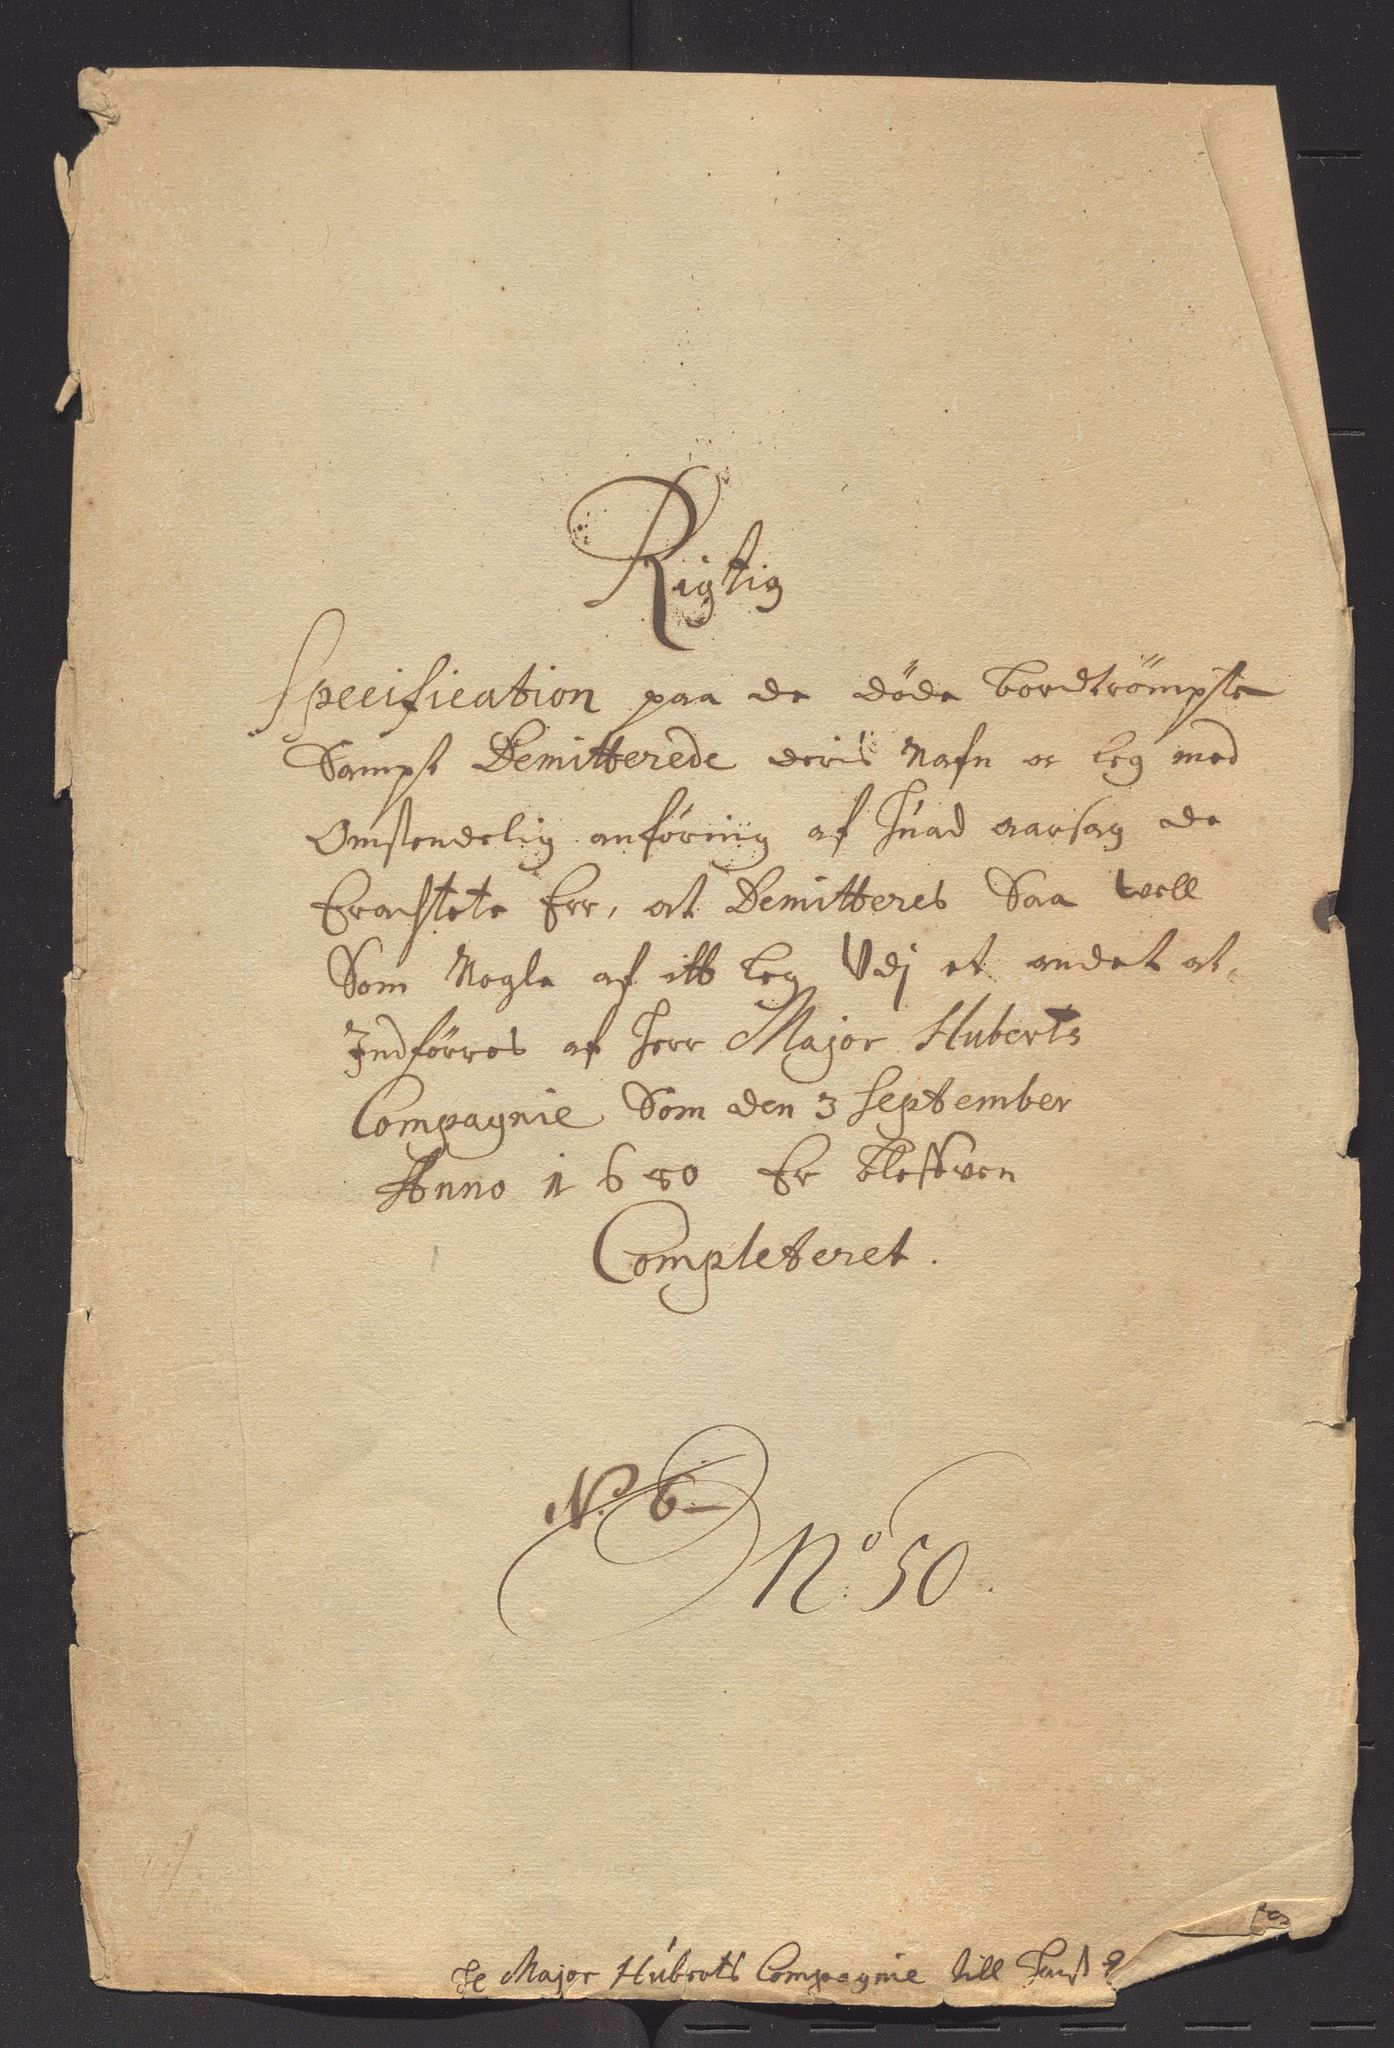 Rigtig
Specification paa de døde bordtrömpste
Sampt Demitterede deris Nafn oc leg med
Omstendelig anføring af huad aarsag de
Erachtete Err, at Demitteres Saa well
Som Nogle af itt leg Udj et andet at
Indførres af Herr Major Huberts
Compagnie Som den 3 September
Anno 1680 Er bleffven
Completeret.
No. 6
No. 50.
Major Huberts Compagnie till